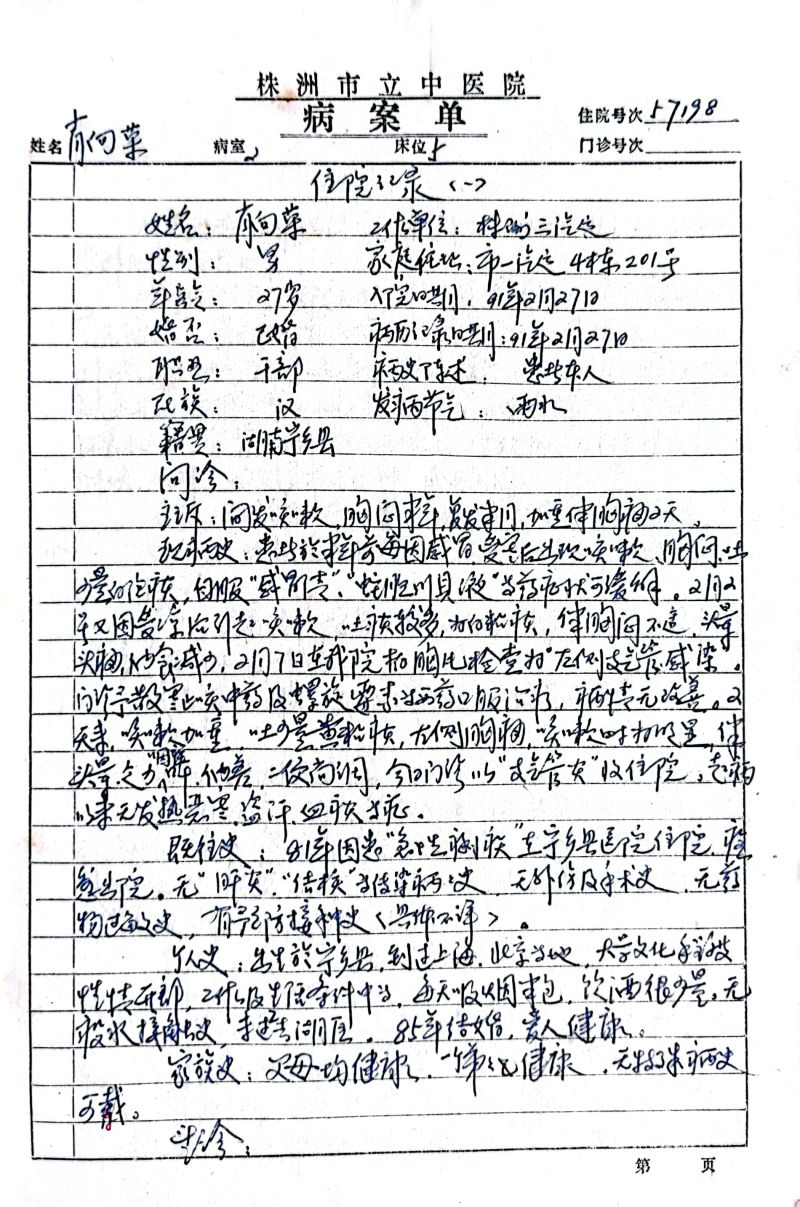 株洲市立中医院
病案单
住院号次 57198
姓名 肖向荣 病室 2 床位 5 门诊号次
住院记录(一)
姓名：肖向荣 工作单位：株洲三汽运
性别：男 家庭住址：市一汽运4栋201号
年龄：27岁 入院日期：91年2月27日
婚否：已婚 病历记录日期：91年2月27日
职业：干部 病史陈述：患者本人
民族：汉 发病节气：雨水
籍贯：湖南宁乡县
问诊：
主诉：间发咳嗽，胸闷半年，复发半月，加重伴胸痛2天。
现病史：患者于半年前每因感冒、受寒后出现咳嗽、胸闷、吐
少量白痰，自服"感冒清"、"蛇胆川贝液"等药症状可缓解。2月2
号又因受凉后引起咳嗽，吐痰较多，为白粘痰，伴胸闷不适，头晕
头痛，纳食减少，2月7日在我院拍胸片检查为"左侧支气管感染"。
门诊予散寒止咳中药及螺旋霉素等西药口服治疗，病情无改善。2
天来，咳嗽加重，吐少量黄粘痰，左侧胸痛，咳嗽时为明显，伴
头晕乏力，纳差，二便尚调，今日门诊以"支气管炎"收住院。起病
以来无发热恶寒、盗汗、血痰等症。
既往史：81年因患"急性痢疾"在宁乡县医院住院，痊
愈出院。无"肝炎"、"结核"等传染病之史，无外伤及手术史，无药
物过敏史，有预防接种史(具体不详)。
个人史：出生于宁乡县，到过上海、北京等地，大学文化
性情开朗，工作及生活条件中等，每天吸烟半包，饮酒很少量。无
疫水接触史，85年结婚，爱人健康。
家族史：父母均健康，一弟健康，无特殊病史
可载。
第 页